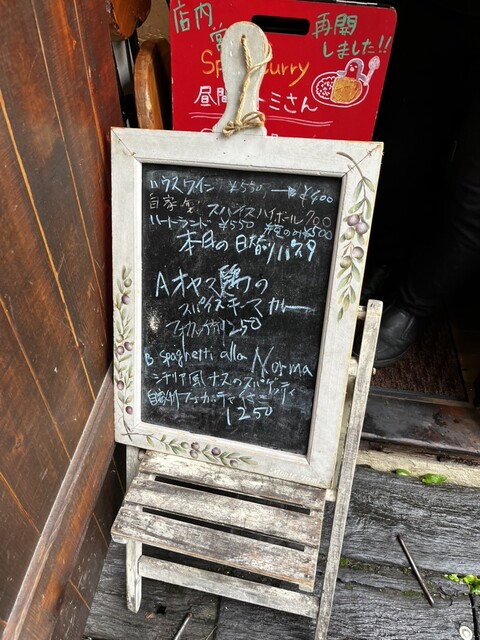 店内
再開
営
しました!!
Sp Curry
昼間 トミさん
ハウスワイン ¥550 → ¥400
自家製 スパイスハイボール 700
ハートランド ¥550 ¥500
本日の日替りパスタ
A オヤス鶏の
スパイスキーマカレー
1250
B Spaghetti alla Norma
シチリア風ナスのスパゲッティ
自家製フォカッチャ
1250